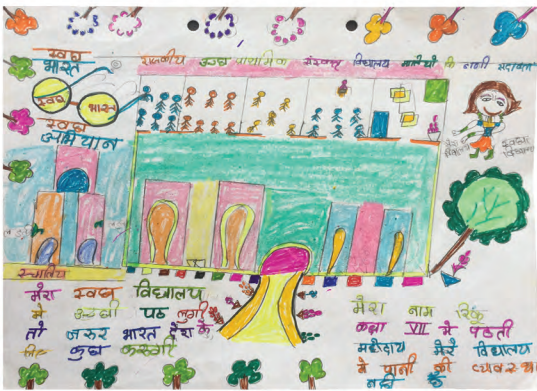 स्वच्छ
भारत
राजकीय उच्च प्राथमिक संस्कृत विद्यालय
स्वच्छ भारत
स्वच्छ
अभियान
मेरा स्वच्छ विद्यालय
मे पढ लुगी
तो जरुर भारत देश के
लिए कुछ करुगी
मेरा नाम रिंकु
कक्षा VII मे पढती
महोदय मेरे विद्यालय
मे पानी की व्यवस्था
नही है